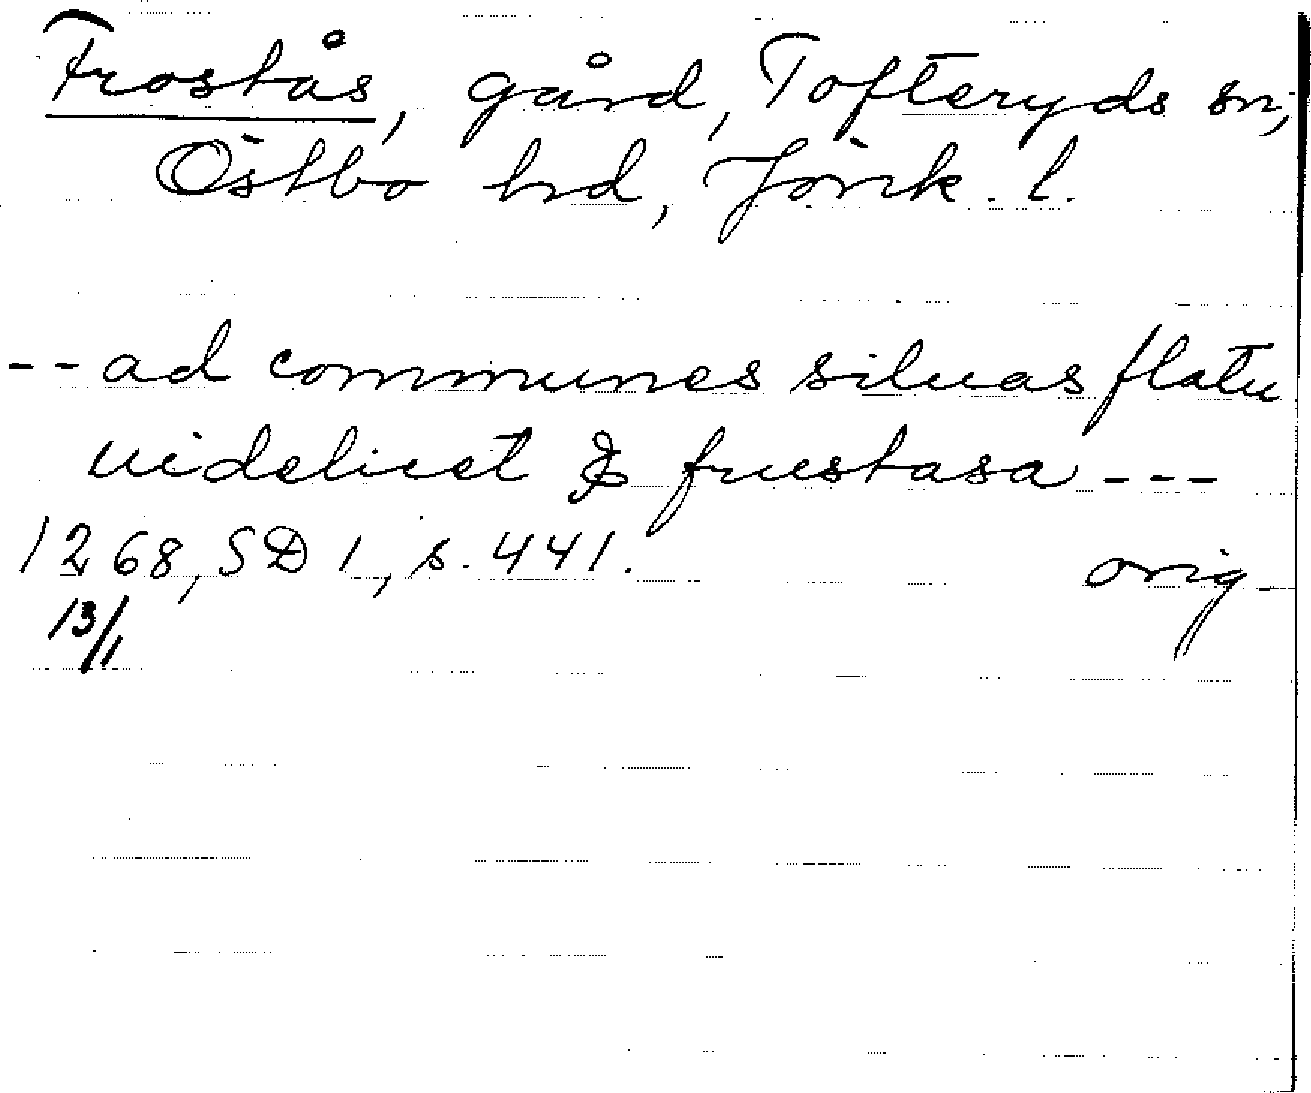 Frostås, gård, Tofteryds sn,
Östbo hd, Jönk. l.
-- ad communes siluas flatu
uidelicet & frustasa ---
1268, SD 1, s. 441. orig
13/1